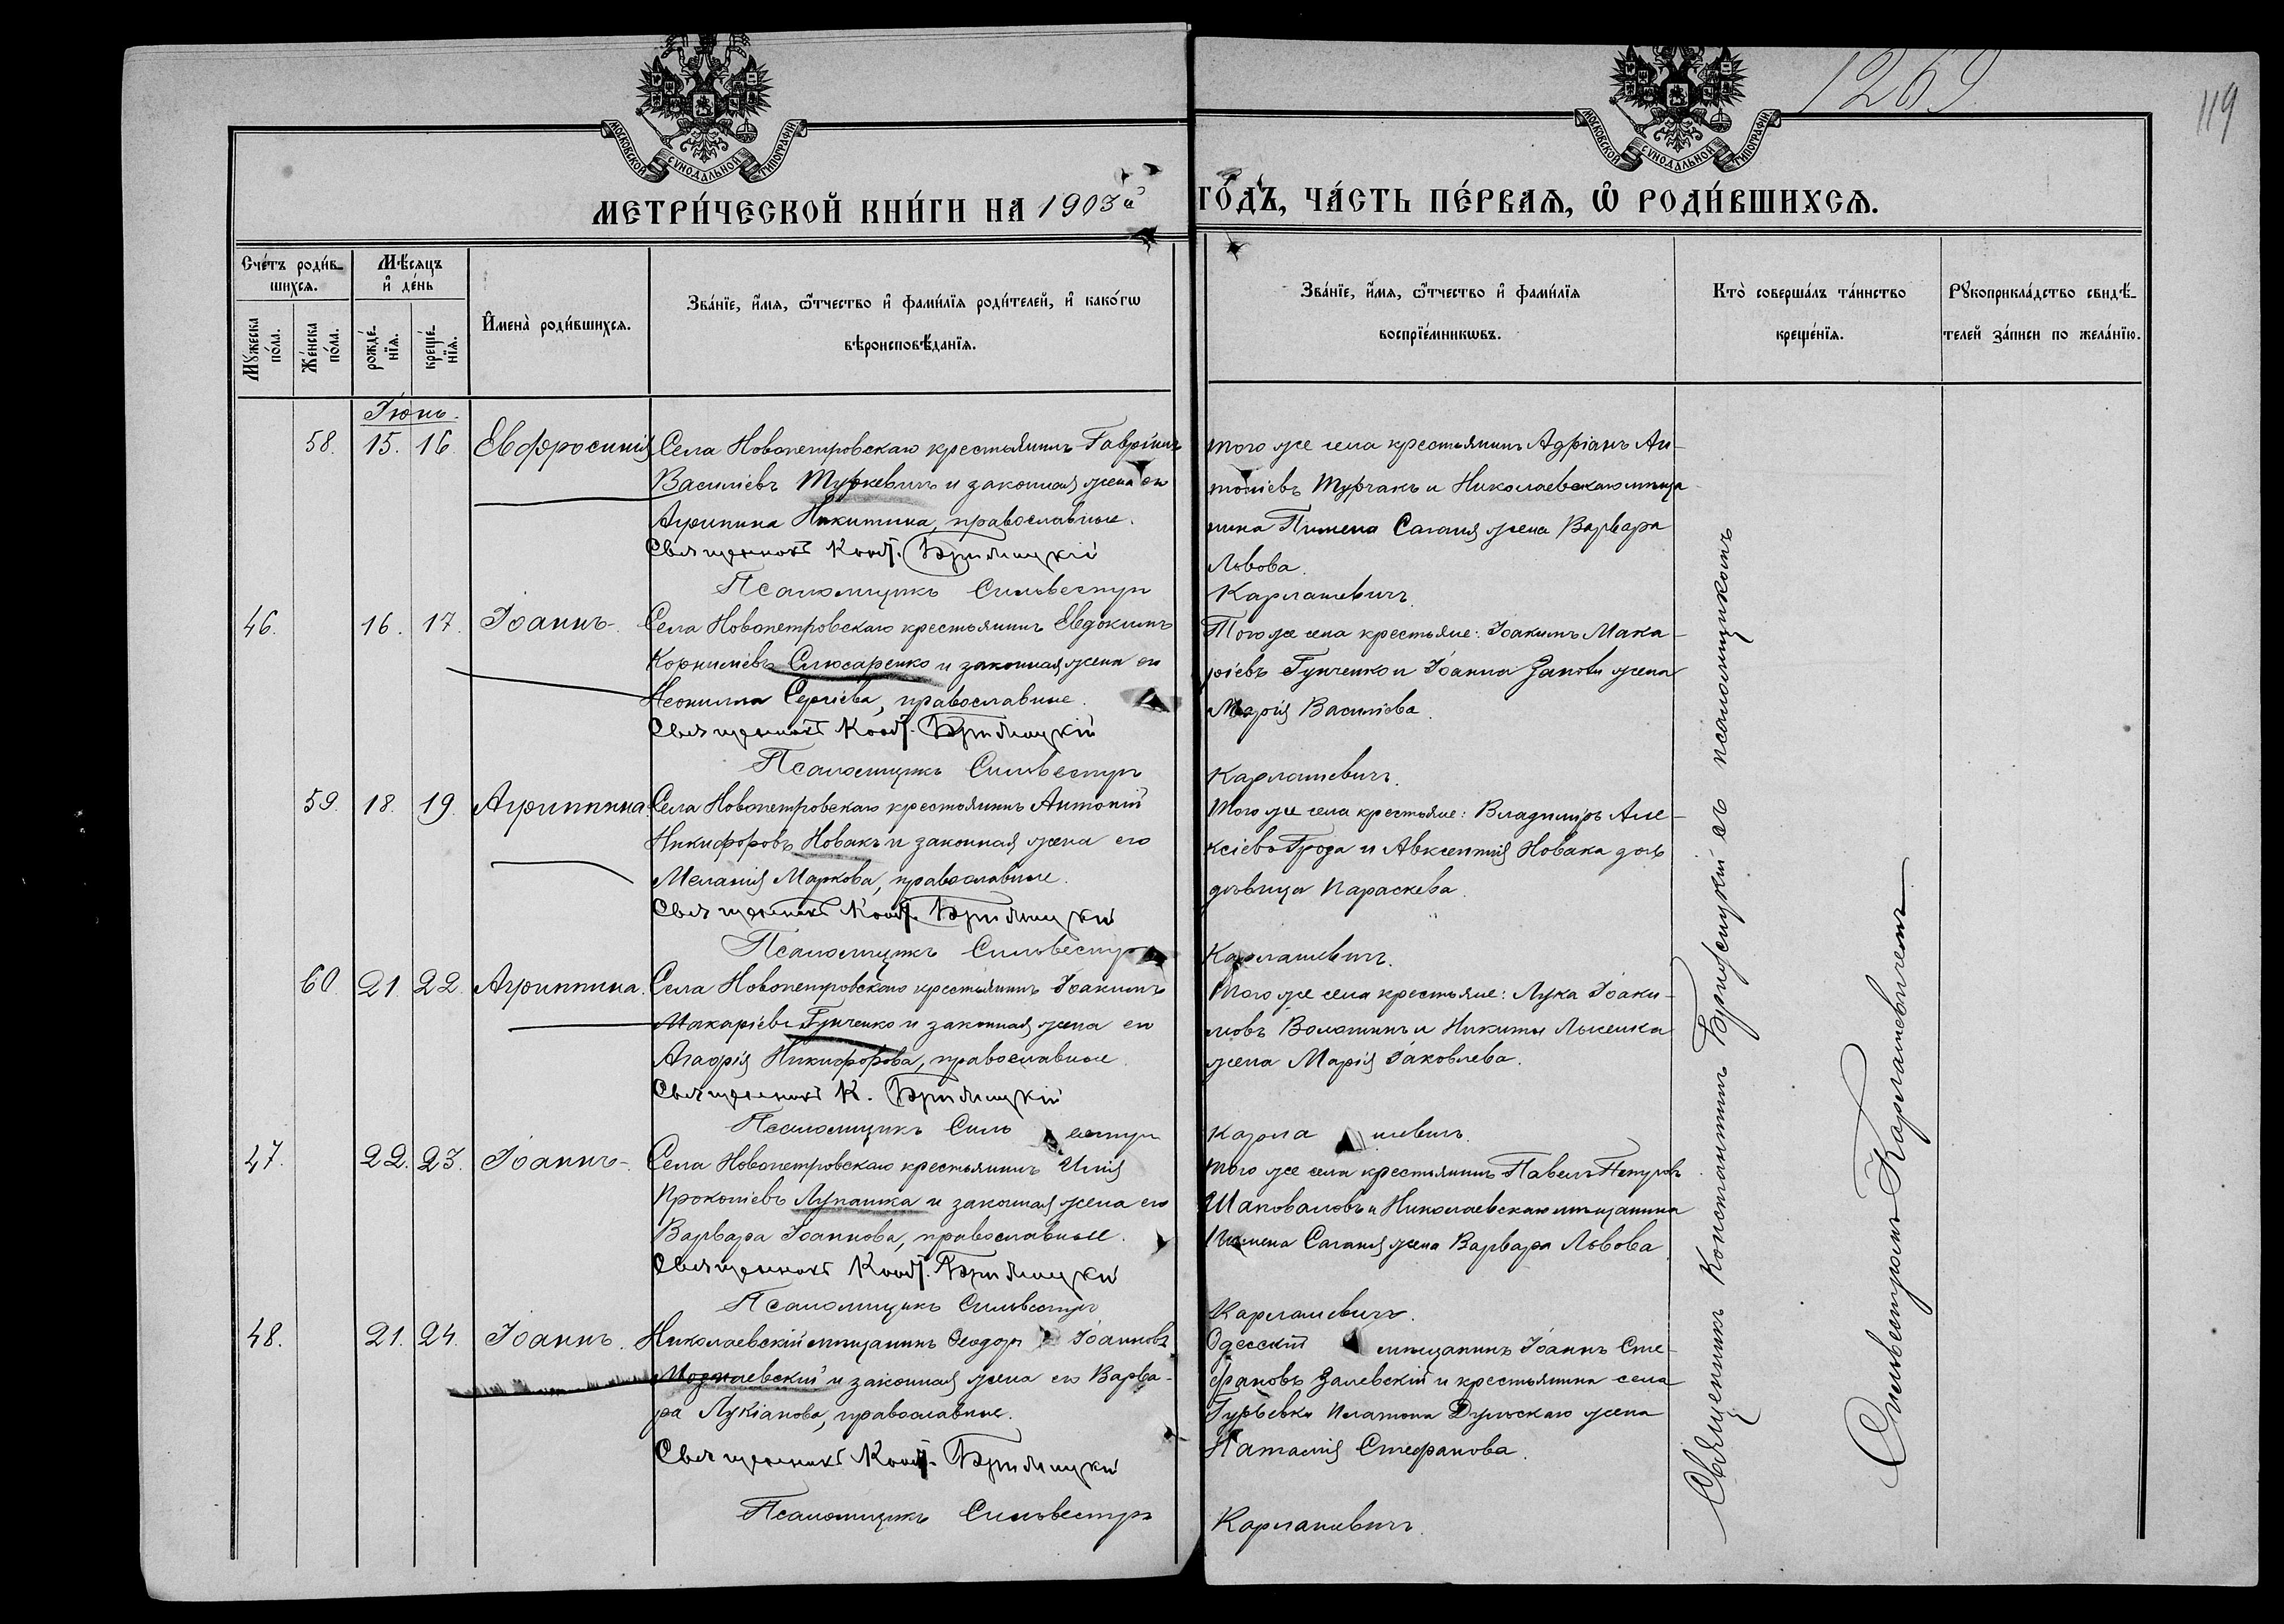 1269
119
МОСКОВСКОЙ СѴНОДАЛЬНОЙ ТИПОГРАФІИ
МОСКОВСКОЙ СѴНОДАЛЬНОЙ ТИПОГРАФІИ
МЕТРИ́ЧЕСКОЙ КНИ́ГИ НА 1903й ГО́ДЪ, ЧА́СТЬ ПЕ́РВАѦ, Ѽ РОДИ́ВШИХСѦ.
Сче́тъ роди́в-
шихсѧ.
Мѣ́сѧцъ
и҆ де́нь
Мꙋжеска по́ла.
Же́нска по́ла.
рожде́-
нїѧ.
креще́-
нїѧ.
И҆мена̀ роди́вшихсѧ.
Зва́нїе, и҆́мѧ, ѻ҆́тчество и҆ фами́лїѧ роди́телей, и҆ како́гѡ
вѣроисповѣ́данїѧ.
Зва́нїе, и҆́мѧ, ѻ҆́тчество и҆ фами́лїѧ
воспрїе́мникѡвъ.
Кто̀ соверша́лъ та́инство
креще́нїѧ.
Рꙋкоприкла́дство свидѣ́-
телей за́писи по жела́нїю.
Іюнь.
58. 15. 16. Евфросинія Села Новопетровскаго крестьянинъ Гавріилъ
Василіевъ Туркевичъ и законная жена его
Агрипина Никитина, православные.
Священникъ Конст. Бржезицкій
Псаломщикъ Сильвестръ
того же села крестьянинъ Адріанъ Ан-
тоніевъ Турчакъ и Николаевскаго мѣща
нина Пимена Саганя жена Варвара
Львова.
Карлашевичъ.
46. 16. 17. Іоаннъ. Села Новопетровскаго крестьянинъ Евдокимъ
Корниліевъ Слюсаренко и законная жена его
Неонилла Сергіева, православные.
Священникъ Конст. Бржезицкій
Псаломщикъ Сильвестръ
Того же села крестьяне: Іоакимъ Мака-
ріевъ Гунченко и Іоанна жена
Марія Василіева.
Карлашевичъ.
59. 18. 19. Агриппина. Села Новопетровскаго крестьянинъ Антоній
Никифоровъ Новакъ и законная жена его
Меланія Маркова, православные.
Священникъ Конст. Бржезицкій
Псаломщикъ Сильвестръ
Того же села крестьяне: Владиміръ Але-
ксіевъ и Авксентія Новака дочь
дѣвица Параскева.
Карлашевичъ.
60. 21. 22. Агриппина. Села Новопетровскаго крестьянинъ Іоакимъ
Макаріевъ Гунченко и законная жена его
Агафія Никифорова, православные.
Священникъ К. Бржезицкій
Псаломщикъ Силь естръ
Того же села крестьяне: Лука Іоаки-
мовъ Волошинъ и Никиты Лысенка
жена Марія Іаковлева.
Карла шевичъ.
47. 22. 23. Іоаннъ. Села Новопетровскаго крестьянинъ Илія
Прокопіевъ Лупашка и законная жена его
Варвара Іоаннова, православные.
Священникъ Конст. Бржезицкій
Псаломщикъ Сильвестръ
того же села крестьянинъ Павелъ Петровъ
Шаповаловъ и Николаевскаго мѣщанина
Пимена Саганя жена Варвара Львова.
Карлашевичъ.
48. 21. 24. Іоаннъ. Николаевскій мѣщанинъ Ѳеодоръ Іоанновъ
и законная жена его Варва-
ра Лукіанова, православные.
Священникъ Конст. Бржезицкій
Псаломщикъ Сильвестръ
Одесскій мѣщанинъ Іоаннъ Сте-
фановъ Залевскій и крестьянина села
Гурьевки Платона Дульскаго жена
Наталія Стефанова.
Карлашевичъ.
Священникъ Константинъ Бржезицкій съ псаломщикомъ
Сильвестромъ Карлашевичемъ